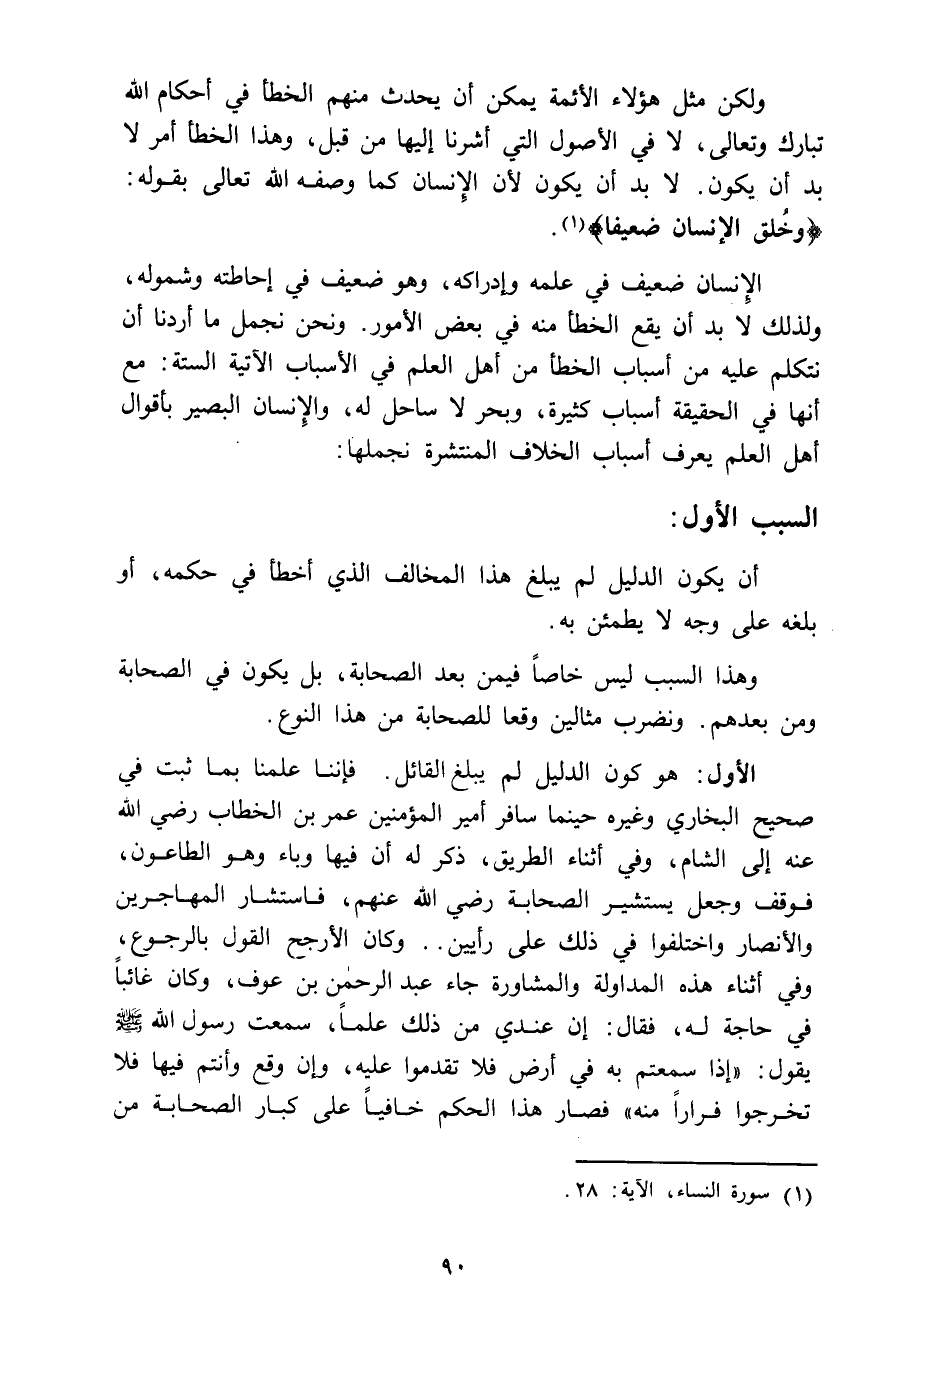 ولكن مثل هؤلاء الأئمة يمكن أن يحدث منهم الخطأ في أحكام الله
تبارك وتعالى، لا في الأصول التي أشرنا إليها من قبل، وهذا الخطأ أمر لا
بد أن يكون. لا بد أن يكون لأن الإِنسان كما وصفه الله تعالى بقوله:
﴿وخُلق الإنسان ضعيفا﴾(١).
الإِنسان ضعيف في علمه وإدراكه، وهو ضعيف في إحاطته وشموله،
ولذلك لا بد أن يقع الخطأ منه في بعض الأمور. ونحن نجمل ما أردنا أن
نتكلم عليه من أسباب الخطأ من أهل العلم في الأسباب الآتية الستة: مع
أنها في الحقيقة أسباب كثيرة، وبحر لا ساحل له، والإِنسان البصير بأقوال
أهل العلم يعرف أسباب الخلاف المنتشرة نجملها:
السبب الأول:
أن يكون الدليل لم يبلغ هذا المخالف الذي أخطأ في حكمه، أو
بلغه على وجه لا يطمئن به.
وهذا السبب ليس خاصاً فيمن بعد الصحابة، بل يكون في الصحابة
ومن بعدهم. ونضرب مثالين وقعا للصحابة من هذا النوع.
الأول: هو كون الدليل لم يبلغ القائل. فإننا علمنا بما ثبت في
صحيح البخاري وغيره حينما سافر أمير المؤمنين عمر بن الخطاب رضي الله
عنه إلى الشام، وفي أثناء الطريق، ذكر له أن فيها وباء وهو الطاعون،
فوقف وجعل يستشير الصحابة رضي الله عنهم، فاستشار المهاجرين
والأنصار واختلفوا في ذلك على رأيين.. وكان الأرجح القول بالرجوع،
وفي أثناء هذه المداولة والمشاورة جاء عبد الرحمٰن بن عوف، وكان غائباً
في حاجة له، فقال: إن عندي من ذلك علماً، سمعت رسول الله ﷺ
يقول: «إذا سمعتم به في أرض فلا تقدموا عليه، وإن وقع وأنتم فيها فلا
تخرجوا فراراً منه» فصار هذا الحكم خافياً على كبار الصحابة من
(١) سورة النساء، الآية: ٢٨.
٩٠